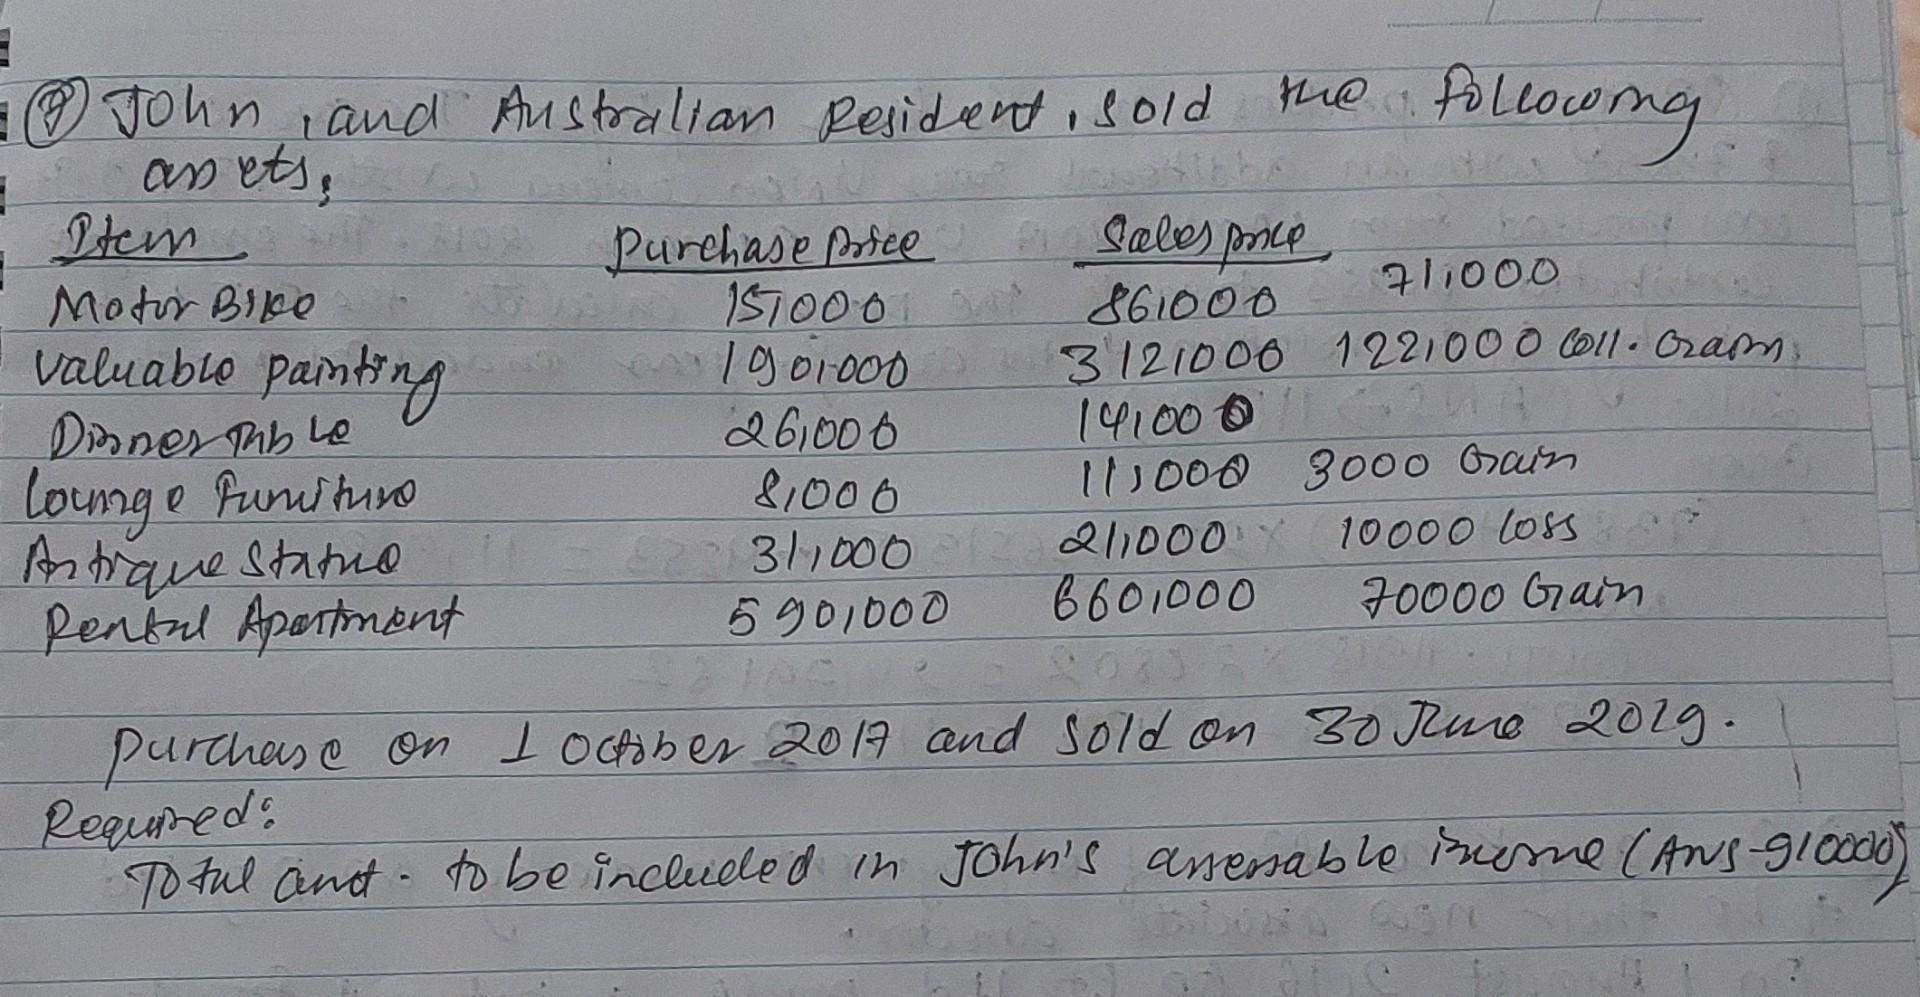 ⑦ John, and Australian Resident, sold the following
assets,
Item Purchase Price Sales price
Motor Bike 15,000 86,000 71,000
Valuable painting 190,000 312,000 122,000 Coll. Gain
Dinner Table 26,000 14,000
Lounge Furniture 8,000 11,000 3000 Gain
Antique Statue 31,000 21,000 10000 loss
Rental Apartment 590,000 660,000 70000 Gain
Purchase on 1 October 2017 and sold on 30 June 2019.
Required:
Total amt. to be included in John's assessable income (Ans-91000)